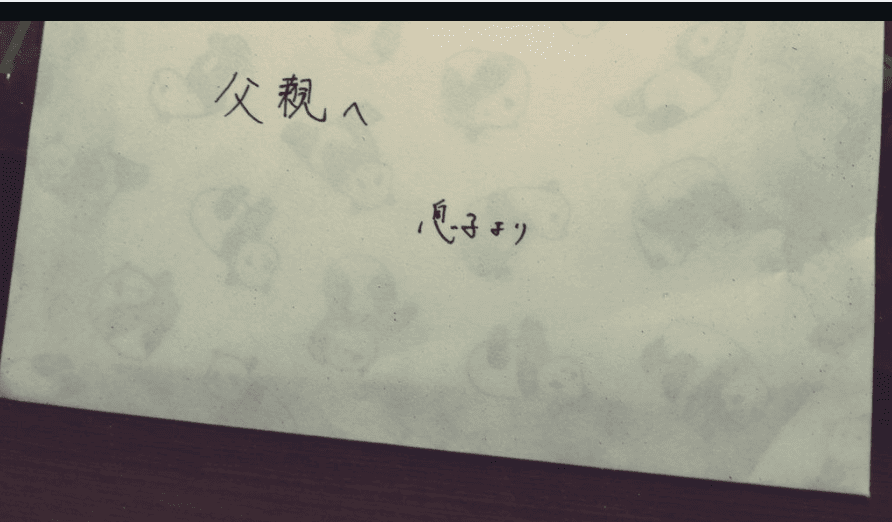 父親へ
息子より